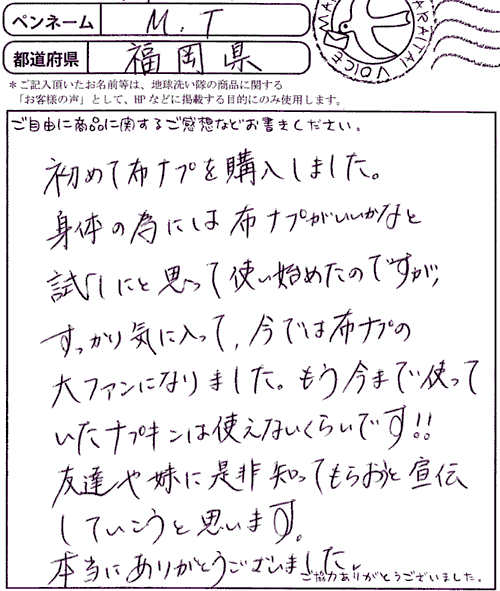 ペンネーム M.T
都道府県 福岡県
＊ご記入頂いたお名前等は、地球洗い隊の商品に関する
「お客様の声」として、HPなどに掲載する目的にのみ使用します。
ご自由に商品に関するご感想などお書きください。
初めて布ナプを購入しました。
身体の為には布ナプがいいかなと
試しにと思って使い始めたのですが、
すっかり気に入って、今では布ナプの
大ファンになりました。もう今まで使って
いたナプキンは使えないくらいです!!
友達や妹に是非知ってもらおと宣伝
していこうと思います。
本当にありがとうございました。
ご協力ありがとうございました。
VOICE